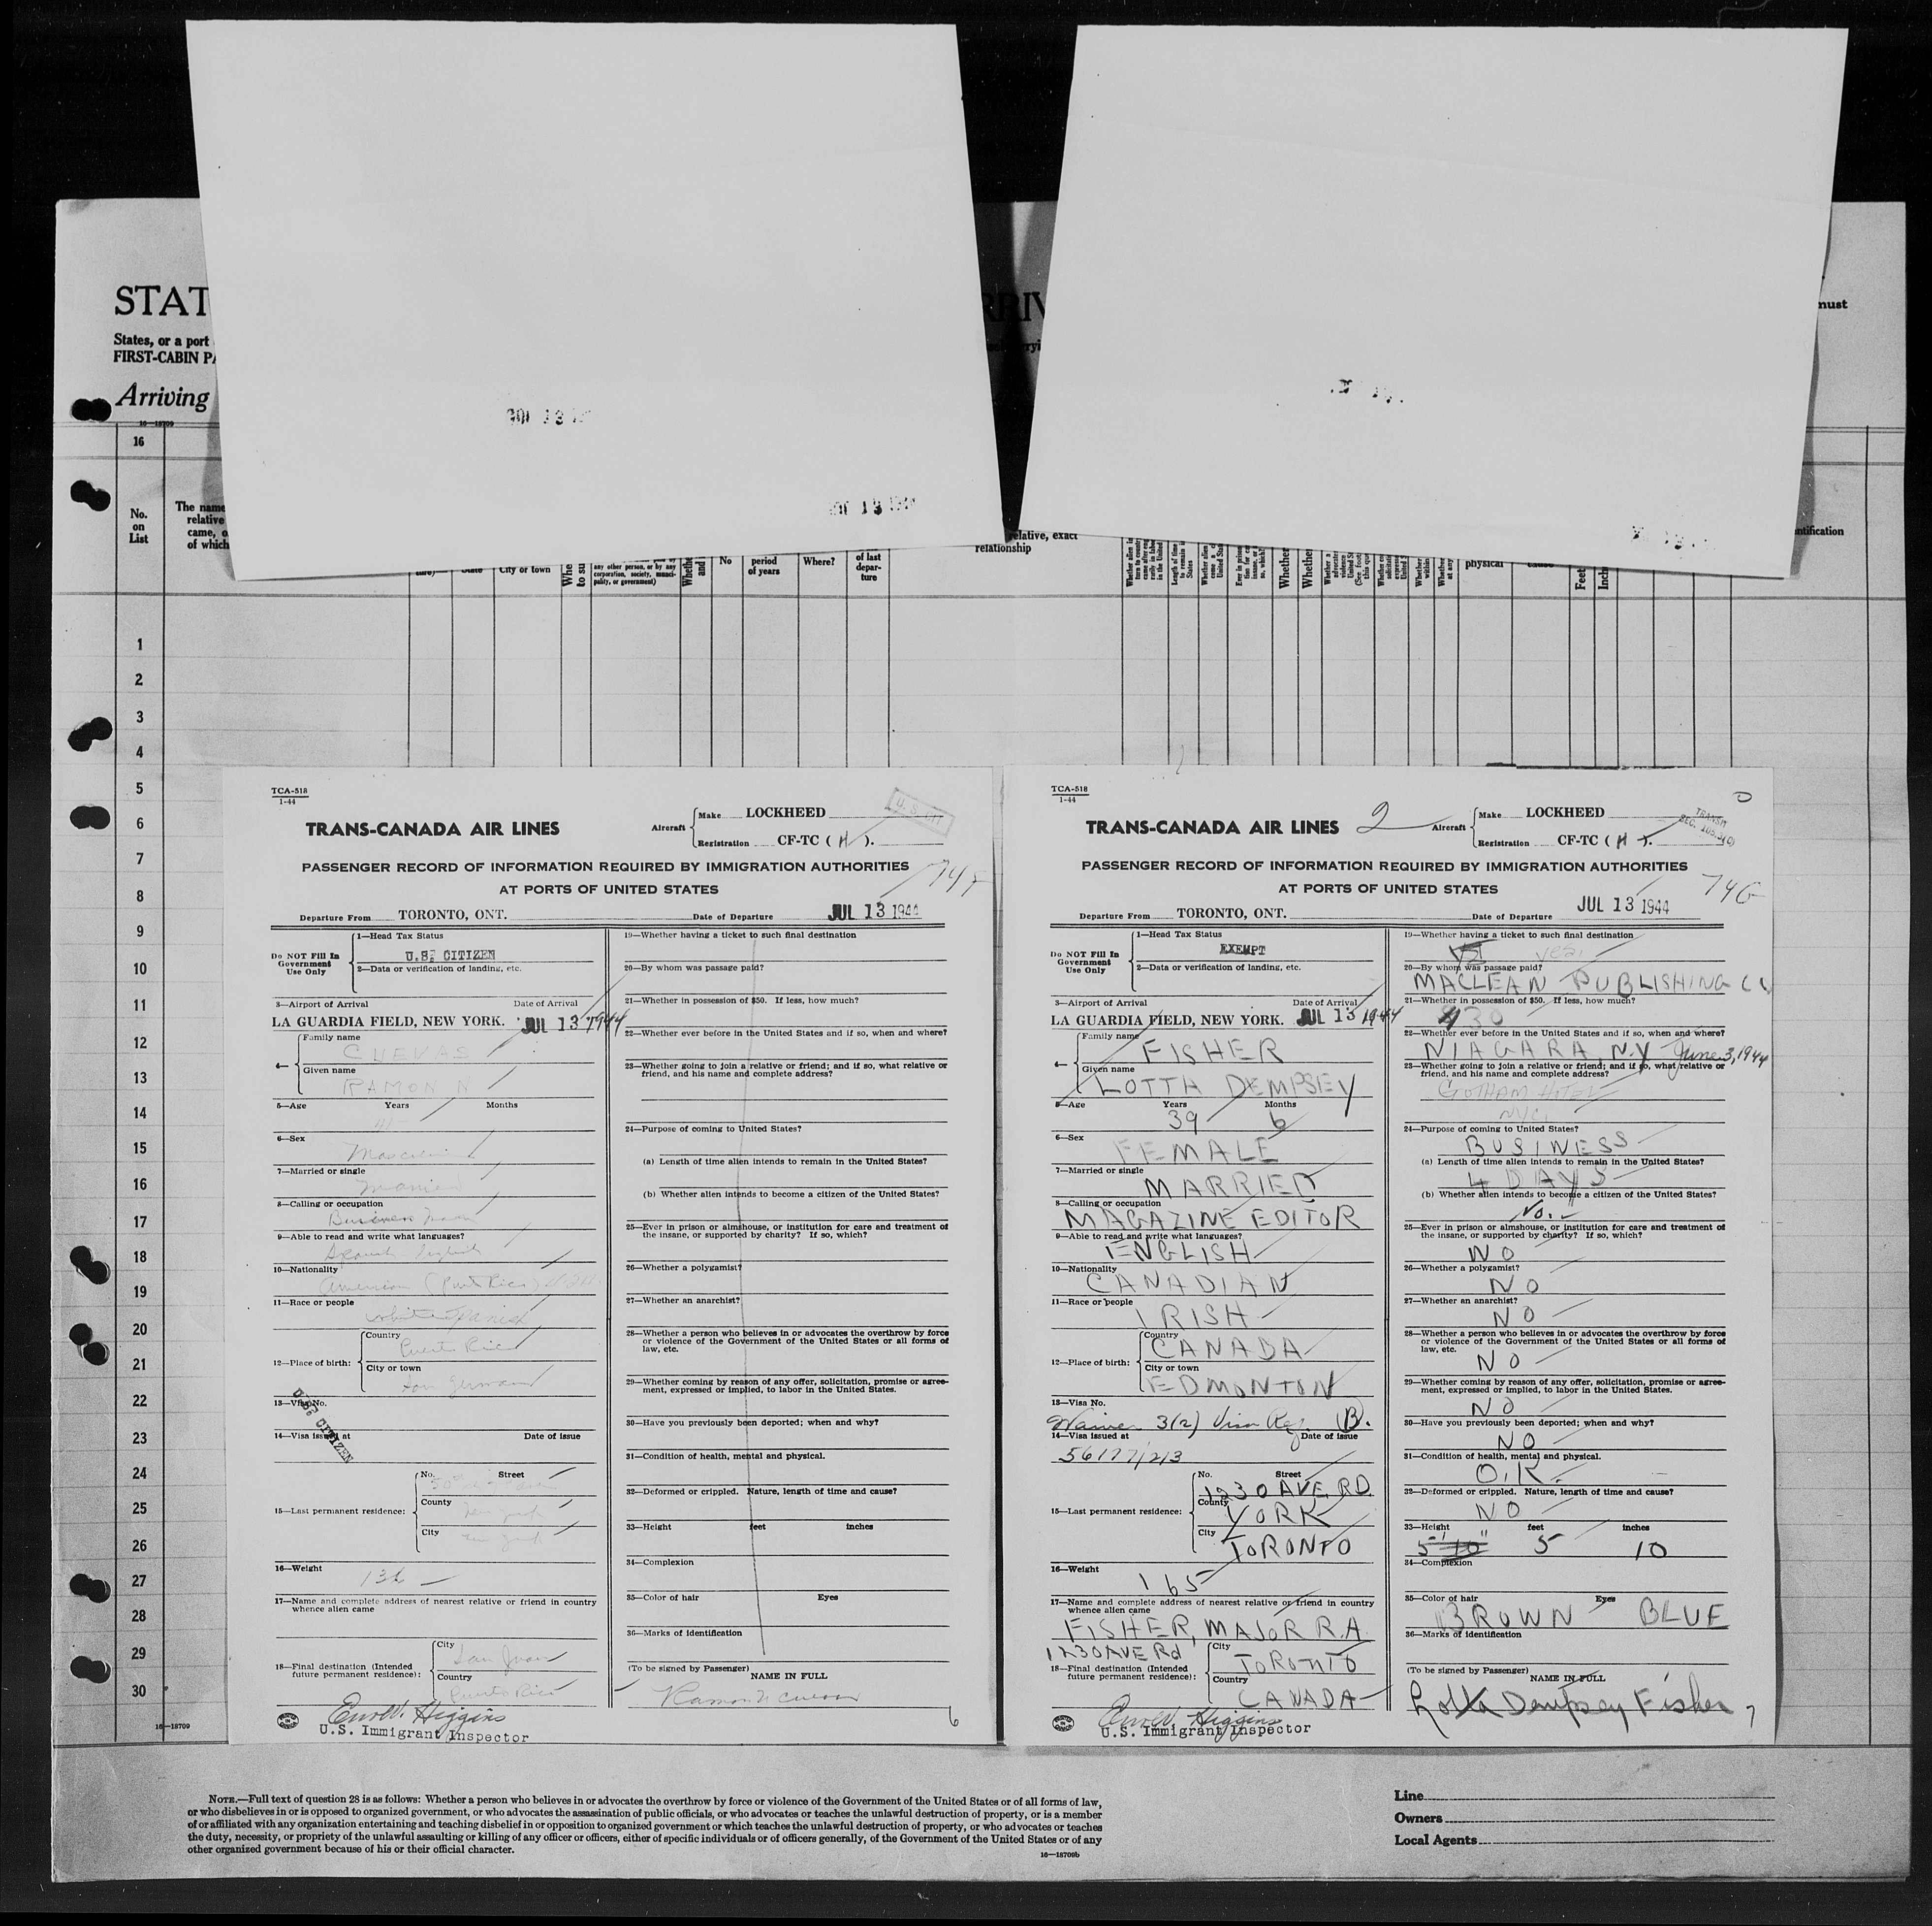 STAT
States, or a port
FIRST-CABIN PA
Arriving
16—18709
16
No.
on
List
The name
relative
came, o
of which
State
City or town
Whe
to su
any other person, or by any
corporation, society, munici-
pality, or government)
Whethe
and
No
period
of years
Where?
of last
depar-
ture
RRIV
must
relative, exact
relationship
physical
cause
Feet
Inch
ntification
JUL 13
1
2
3
4
5
6
7
8
9
10
11
12
13
14
15
16
17
18
19
20
21
22
23
24
25
26
27
28
29
30
16—18709
TCA-518
1-44
TRANS-CANADA AIR LINES
Aircraft
Make LOCKHEED
Registration CF-TC ( H ).
PASSENGER RECORD OF INFORMATION REQUIRED BY IMMIGRATION AUTHORITIES
AT PORTS OF UNITED STATES
Departure From TORONTO, ONT. Date of Departure JUL 13 1944
Do NOT Fill In
Government
Use Only
1—Head Tax Status
U.S. CITIZEN
2—Data or verification of landing, etc.
3—Airport of Arrival Date of Arrival
LA GUARDIA FIELD, NEW YORK. JUL 13 1944
4—
Family name
CUEVAS
Given name
RAMON N
5—Age Years Months
6—Sex
Masculine
7—Married or single
Married
8—Calling or occupation
Business man
9—Able to read and write what languages?
Spanish English
10—Nationality
American (Puerto Rico)
11—Race or people
white Spanish
12—Place of birth:
Country
Puerto Rico
City or town
San German
13—Visa No.
U.S. CITIZEN
14—Visa issued at Date of issue
15—Last permanent residence:
No. Street
County
New York
City
New York
16—Weight
136
17—Name and complete address of nearest relative or friend in country
whence alien came
18—Final destination (Intended
future permanent residence):
City
San Juan
Country
Puerto Rico
U.S. Immigrant Inspector
19—Whether having a ticket to such final destination
20—By whom was passage paid?
21—Whether in possession of $50. If less, how much?
22—Whether ever before in the United States and if so, when and where?
23—Whether going to join a relative or friend; and if so, what relative or
friend, and his name and complete address?
24—Purpose of coming to United States?
(a) Length of time alien intends to remain in the United States?
(b) Whether alien intends to become a citizen of the United States?
25—Ever in prison or almshouse, or institution for care and treatment of
the insane, or supported by charity? If so, which?
26—Whether a polygamist?
27—Whether an anarchist?
28—Whether a person who believes in or advocates the overthrow by force
or violence of the Government of the United States or all forms of
law, etc.
29—Whether coming by reason of any offer, solicitation, promise or agree-
ment, expressed or implied, to labor in the United States.
30—Have you previously been deported; when and why?
31—Condition of health, mental and physical.
32—Deformed or crippled. Nature, length of time and cause?
33—Height feet inches
34—Complexion
35—Color of hair Eyes
36—Marks of identification
(To be signed by Passenger) NAME IN FULL
Ramon N Cuevas
6
TCA-518
1-44
TRANS-CANADA AIR LINES 2
Aircraft
Make LOCKHEED
Registration CF-TC ( H ).
PASSENGER RECORD OF INFORMATION REQUIRED BY IMMIGRATION AUTHORITIES
AT PORTS OF UNITED STATES
74G
Departure From TORONTO, ONT. Date of Departure JUL 13 1944
Do NOT Fill In
Government
Use Only
1—Head Tax Status
EXEMPT
2—Data or verification of landing, etc.
3—Airport of Arrival Date of Arrival
LA GUARDIA FIELD, NEW YORK. JUL 13 1944
4—
Family name
FISHER
Given name
LOTTA DEMPSEY
5—Age Years Months
39 6
6—Sex
FEMALE
7—Married or single
MARRIED
8—Calling or occupation
MAGAZINE EDITOR
9—Able to read and write what languages?
ENGLISH
10—Nationality
CANADIAN
11—Race or people
IRISH
12—Place of birth:
Country
CANADA
City or town
EDMONTON
13—Visa No.
Waiver 3(2) Visa Reg. (B).
14—Visa issued at Date of issue
56177/213
15—Last permanent residence:
No. Street
1230 AVE. RD.
County
YORK
City
TORONTO
16—Weight
165
17—Name and complete address of nearest relative or friend in country
whence alien came
FISHER, MAJOR R.A.
1230 AVE Rd
18—Final destination (Intended
future permanent residence):
City
TORONTO
Country
CANADA
U.S. Immigrant Inspector
19—Whether having a ticket to such final destination
yes
20—By whom was passage paid?
MACLEAN PUBLISHING CO
21—Whether in possession of $50. If less, how much?
22—Whether ever before in the United States and if so, when and where?
NIAGARA, N.Y. June 3, 1944
23—Whether going to join a relative or friend; and if so, what relative or
friend, and his name and complete address?
GOTHAM HOTEL
NYC.
24—Purpose of coming to United States?
BUSINESS
(a) Length of time alien intends to remain in the United States?
4 DAYS
(b) Whether alien intends to become a citizen of the United States?
No.
25—Ever in prison or almshouse, or institution for care and treatment of
the insane, or supported by charity? If so, which?
NO
26—Whether a polygamist?
NO
27—Whether an anarchist?
NO
28—Whether a person who believes in or advocates the overthrow by force
or violence of the Government of the United States or all forms of
law, etc.
NO
29—Whether coming by reason of any offer, solicitation, promise or agree-
ment, expressed or implied, to labor in the United States.
NO
30—Have you previously been deported; when and why?
NO
31—Condition of health, mental and physical.
O.K.
32—Deformed or crippled. Nature, length of time and cause?
NO
33—Height feet inches
5' 10" 5 10
34—Complexion
35—Color of hair Eyes
BROWN BLUE
36—Marks of identification
(To be signed by Passenger) NAME IN FULL
Lotta Dempsey Fisher
7
NOTE.—Full text of question 28 is as follows: Whether a person who believes in or advocates the overthrow by force or violence of the Government of the United States or of all forms of law,
or who disbelieves in or is opposed to organized government, or who advocates the assassination of public officials, or who advocates or teaches the unlawful destruction of property, or is a member
of or affiliated with any organization entertaining and teaching disbelief in or opposition to organized government or which teaches the unlawful destruction of property, or who advocates or teaches
the duty, necessity, or propriety of the unlawful assaulting or killing of any officer or officers, either of specific individuals or of officers generally, of the Government of the United States or of any
other organized government because of his or their official character.
16—18709b
Line
Owners
Local Agents